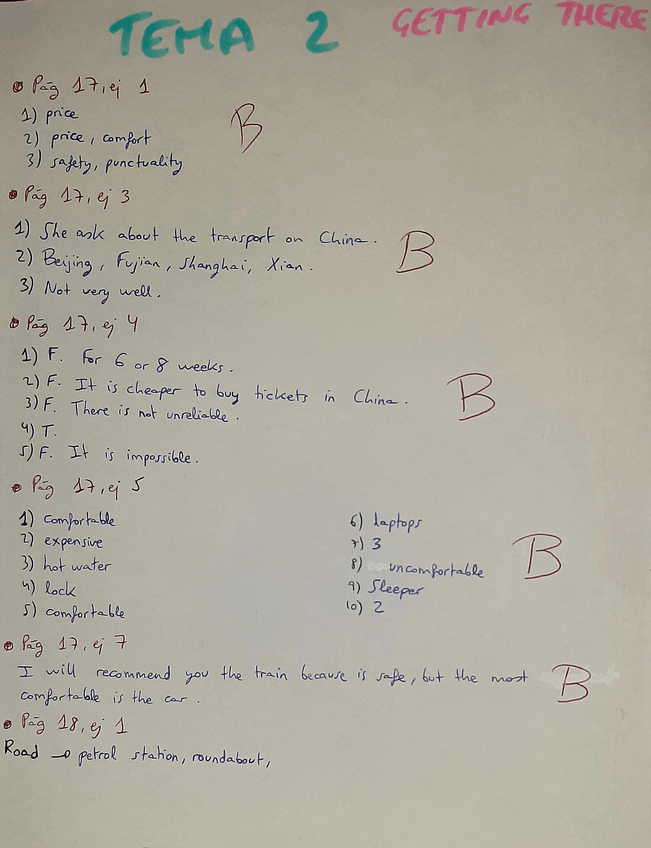 TEMA 2 GETTING THERE
Pág 17, ej 1
1) price
2) price, comfort
3) safety, punctuality
B
Pág 17, ej 3
1) She ask about the transport on China.
2) Beijing, Fujian, Shanghai, Xian.
3) Not very well.
B
Pág 17, ej 4
1) F. For 6 or 8 weeks.
2) F. It is cheaper to buy tickets in China.
3) F. There is not unreliable.
4) T.
5) F. It is impossible.
B
Pág 17, ej 5
1) comfortable
2) expensive
3) hot water
4) lock
5) comfortable
6) laptops
7) 3
8) uncomfortable
9) Sleeper
10) 2
B
Pág 17, ej 7
I will recommend you the train because is safe, but the most
comfortable is the car.
B
Pág 18, ej 1
Road → petrol station, roundabout,